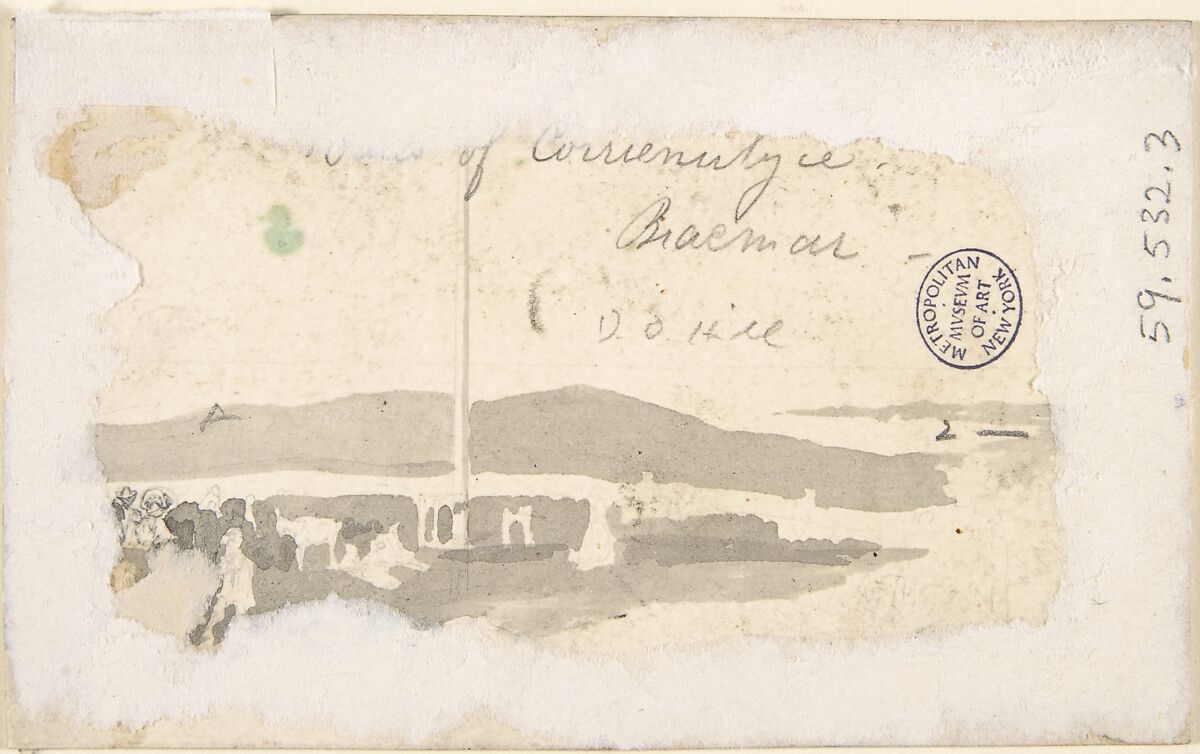 of Corriemulzie.
Braemar -
D. O. Hill
METROPOLITAN
MVSEVM
OF ART
NEW YORK
2 —
59.532.3